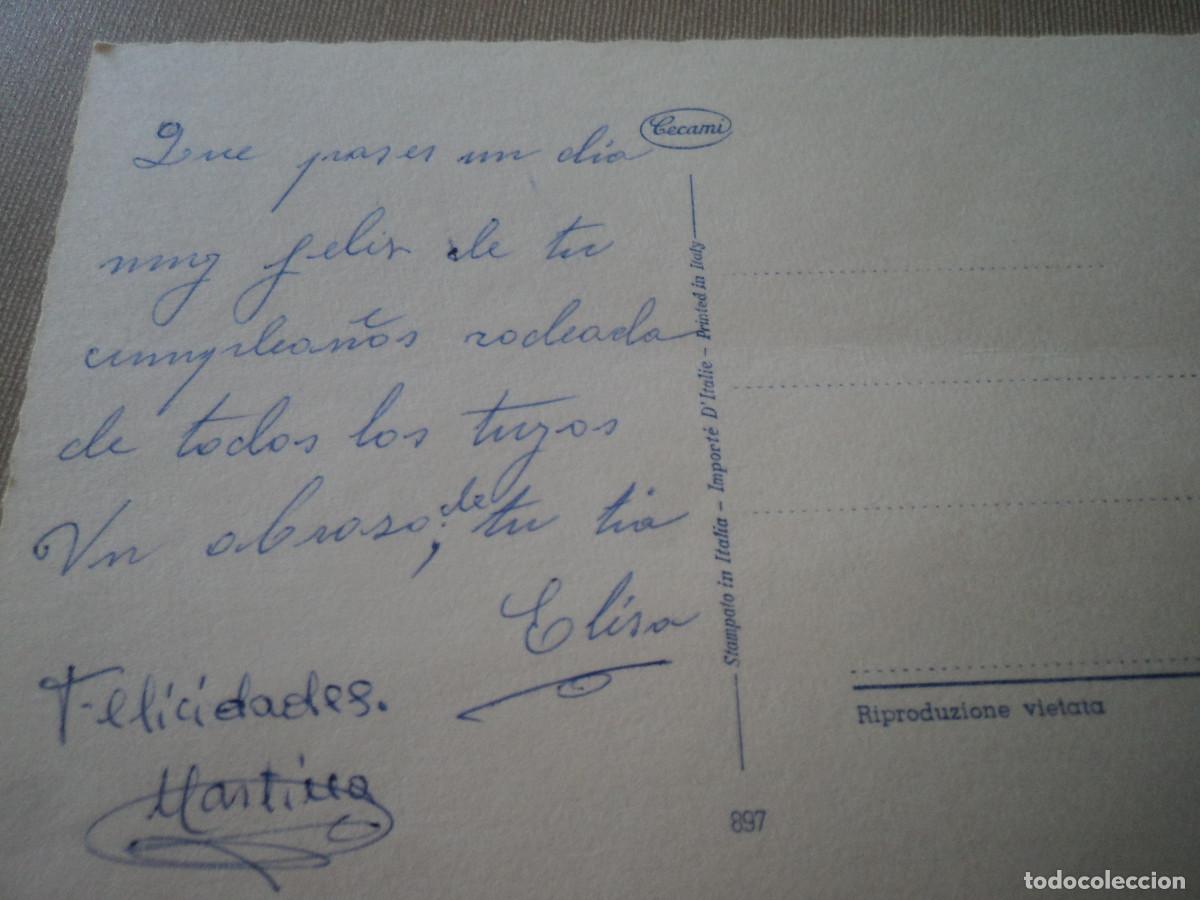 Que pases un dia
muy felis de tu
cumpleaños rodeada
de todos los tuyos
Un abraso, de tu tia
Elisa
Felicidades.
Martina
Cecami
Stampato in Italia - Importé D'Italie - Printed in Italy
Riproduzione vietata
897
todocoleccion